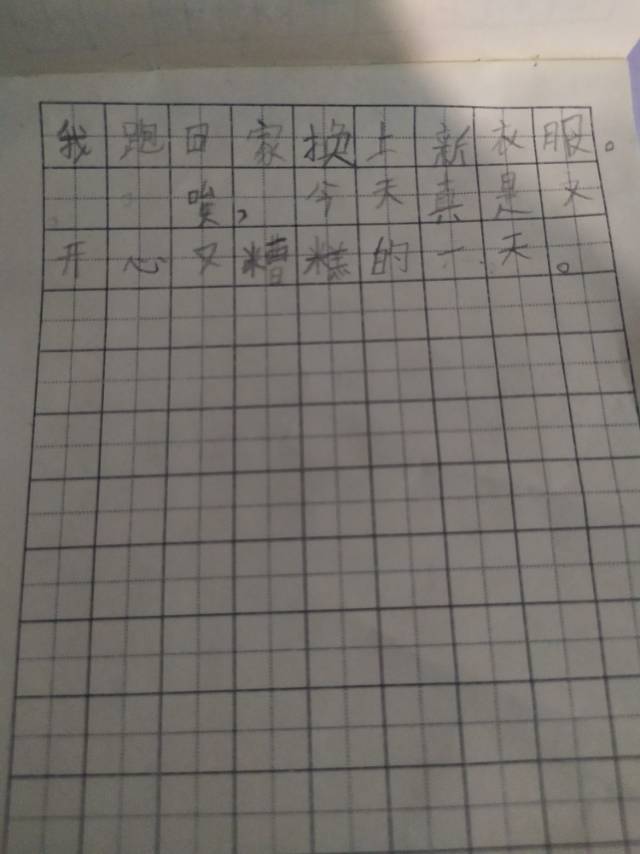 我跑回家换上新衣服。
唉，今天真是又
开心又糟糕的一天。